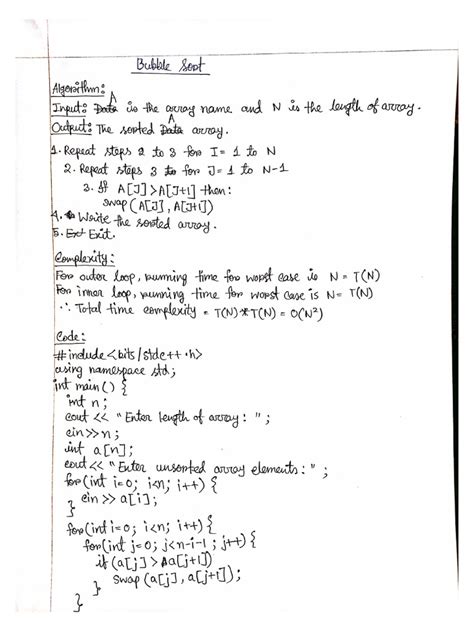 Bubble Sort
Algorithm:
A
Input: Data is the array name and N is the length of array.
A
Output: The sorted Data array.
1. Repeat steps 2 to 3 for I = 1 to N
2. Repeat steps 3 to for J = 1 to N-1
3. If A[J] > A[J+1] then:
swap (A[J], A[J+1])
4. Write the sorted array.
5. Ext Exit.
Complexity:
For outer loop, running time for worst case is N = T(N)
For inner loop, running time for worst case is N = T(N)
∴ Total time complexity = T(N) * T(N) = O(N²)
Code:
#include <bits/stdc++.h>
using namespace std;
int main () {
int n;
cout << "Enter length of array: " ;
cin >> n;
int a[n];
cout << "Enter unsorted array elements: " ;
for (int i=0; i<n; i++) {
cin >> a[i];
}
for (int i=0; i<n; i++) {
for (int j=0; j<n-i-1; j++) {
if (a[j] > a[j+1])
swap (a[j], a[j+1]);
}
}